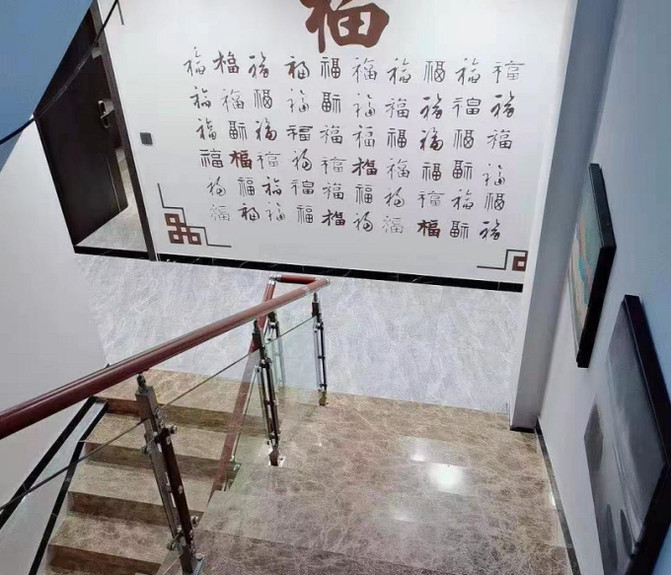 福
福福福福福福福福福福
福福福福福福福福福福
福福福福福福福福福福
福福福福福福福福福福
福福福福福福福福福福
福福福福福福福福福福